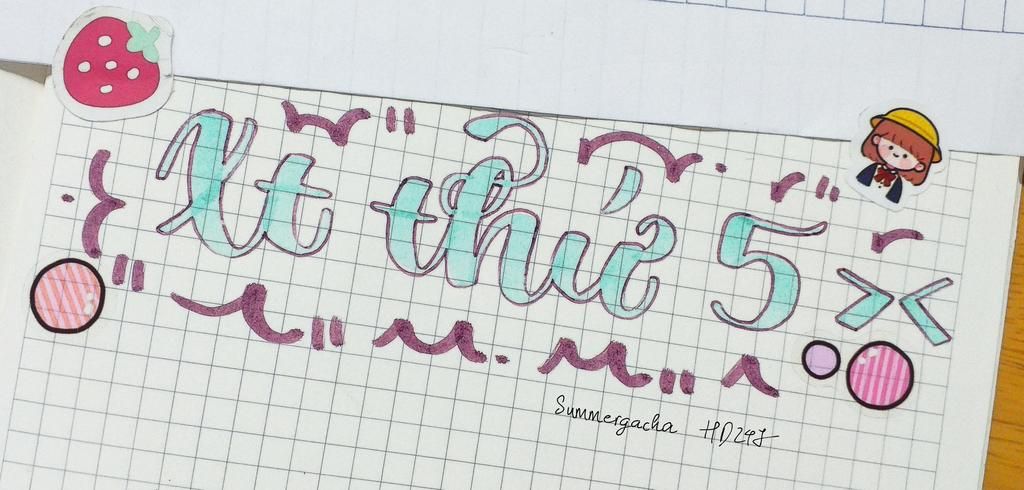 Xt thứ 5 ><
Summergacha HD247